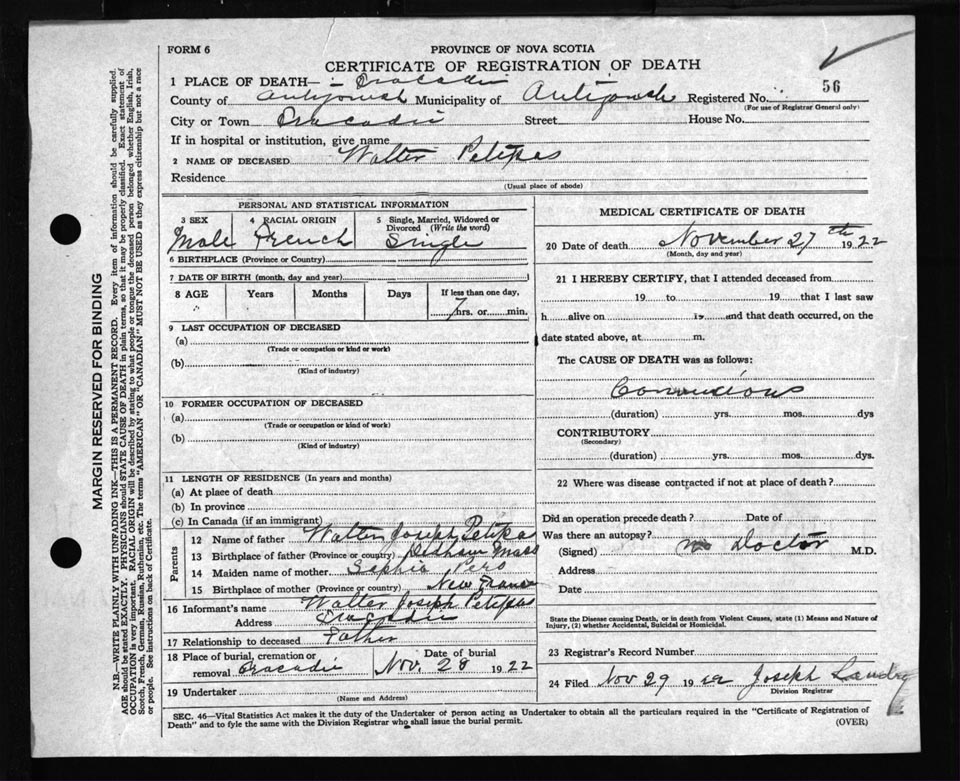 FORM 6
PROVINCE OF NOVA SCOTIA
CERTIFICATE OF REGISTRATION OF DEATH
1 PLACE OF DEATH— Tracadie
56
County of Antigonish Municipality of Antigonish Registered No.
(For use of Registrar General only)
City or Town Tracadie Street House No.
If in hospital or institution, give name
2 NAME OF DECEASED Walter Petipas
Residence
(Usual place of abode)
PERSONAL AND STATISTICAL INFORMATION
3 SEX 4 RACIAL ORIGIN 5 Single, Married, Widowed or Divorced (Write the word)
Male French Single
6 BIRTHPLACE (Province or Country)
7 DATE OF BIRTH (month, day and year)
8 AGE Years Months Days If less than one day,
7 hrs. or min.
9 LAST OCCUPATION OF DECEASED
(a)
(Trade or occupation or kind or work)
(b)
(Kind of industry)
10 FORMER OCCUPATION OF DECEASED
(a)
(Trade or occupation or kind of work)
(b)
(Kind of industry)
11 LENGTH OF RESIDENCE (In years and months)
(a) At place of death
(b) In province
(c) In Canada (if an immigrant)
Parents
12 Name of father Walter Joseph Petipas
13 Birthplace of father (Province or country) Dedham Mass
14 Maiden name of mother Sophia
15 Birthplace of mother (Province or country) New France
16 Informant's name Walter Joseph Petipas
Address Tracadie
17 Relationship to deceased Father
18 Place of burial, cremation or removal Tracadie
Date of burial
Nov. 28 1922
19 Undertaker
(Name and Address)
MEDICAL CERTIFICATE OF DEATH
20 Date of death November 27th 1922
(Month, day and year)
21 I HEREBY CERTIFY, that I attended deceased from
19 to 19 that I last saw
h alive on 19 and that death occurred, on the
date stated above, at m.
The CAUSE OF DEATH was as follows:
(duration) yrs. mos. dys
CONTRIBUTORY
(Secondary)
(duration) yrs. mos. dys.
22 Where was disease contracted if not at place of death?
Did an operation precede death? Date of
Was there an autopsy?
(Signed) no Doctor M.D.
Address
Date
State the Disease causing Death, or in death from Violent Causes, state (1) Means and Nature of
Injury, (2) whether Accidental, Suicidal or Homicidal.
23 Registrar's Record Number
24 Filed Nov 29 1922 Joseph Landry
Division Registrar
SEC. 46—Vital Statistics Act makes it the duty of the Undertaker or person acting as Undertaker to obtain all the particulars required in the "Certificate of Registration of
Death" and to fyle the same with the Division Registrar who shall issue the burial permit.
(OVER)
MARGIN RESERVED FOR BINDING
N.B.—WRITE PLAINLY WITH UNFADING INK—THIS IS A PERMANENT RECORD. Every item of information should be carefully supplied.
AGE should be stated EXACTLY. PHYSICIANS should STATE CAUSE OF DEATH in plain terms, so that it may be properly classified. Exact statement of
OCCUPATION is very important. RACIAL ORIGIN will be described by stating to what people or tongue the deceased person belonged whether English, Irish,
Scotch, French, German, Russian, Ruthenian, etc. The terms "AMERICAN" OR "CANADIAN" MUST NOT BE USED as they express citizenship but not a race
or people. See instructions on back of Certificate.